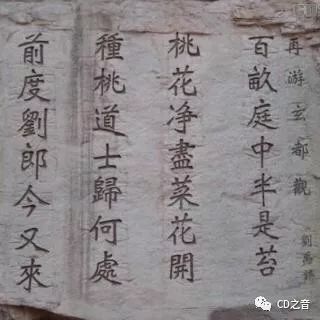 再游玄都觀
劉禹錫
百畝庭中半是苔
桃花净盡菜花開
種桃道士歸何處
前度劉郎今又來
CD之音